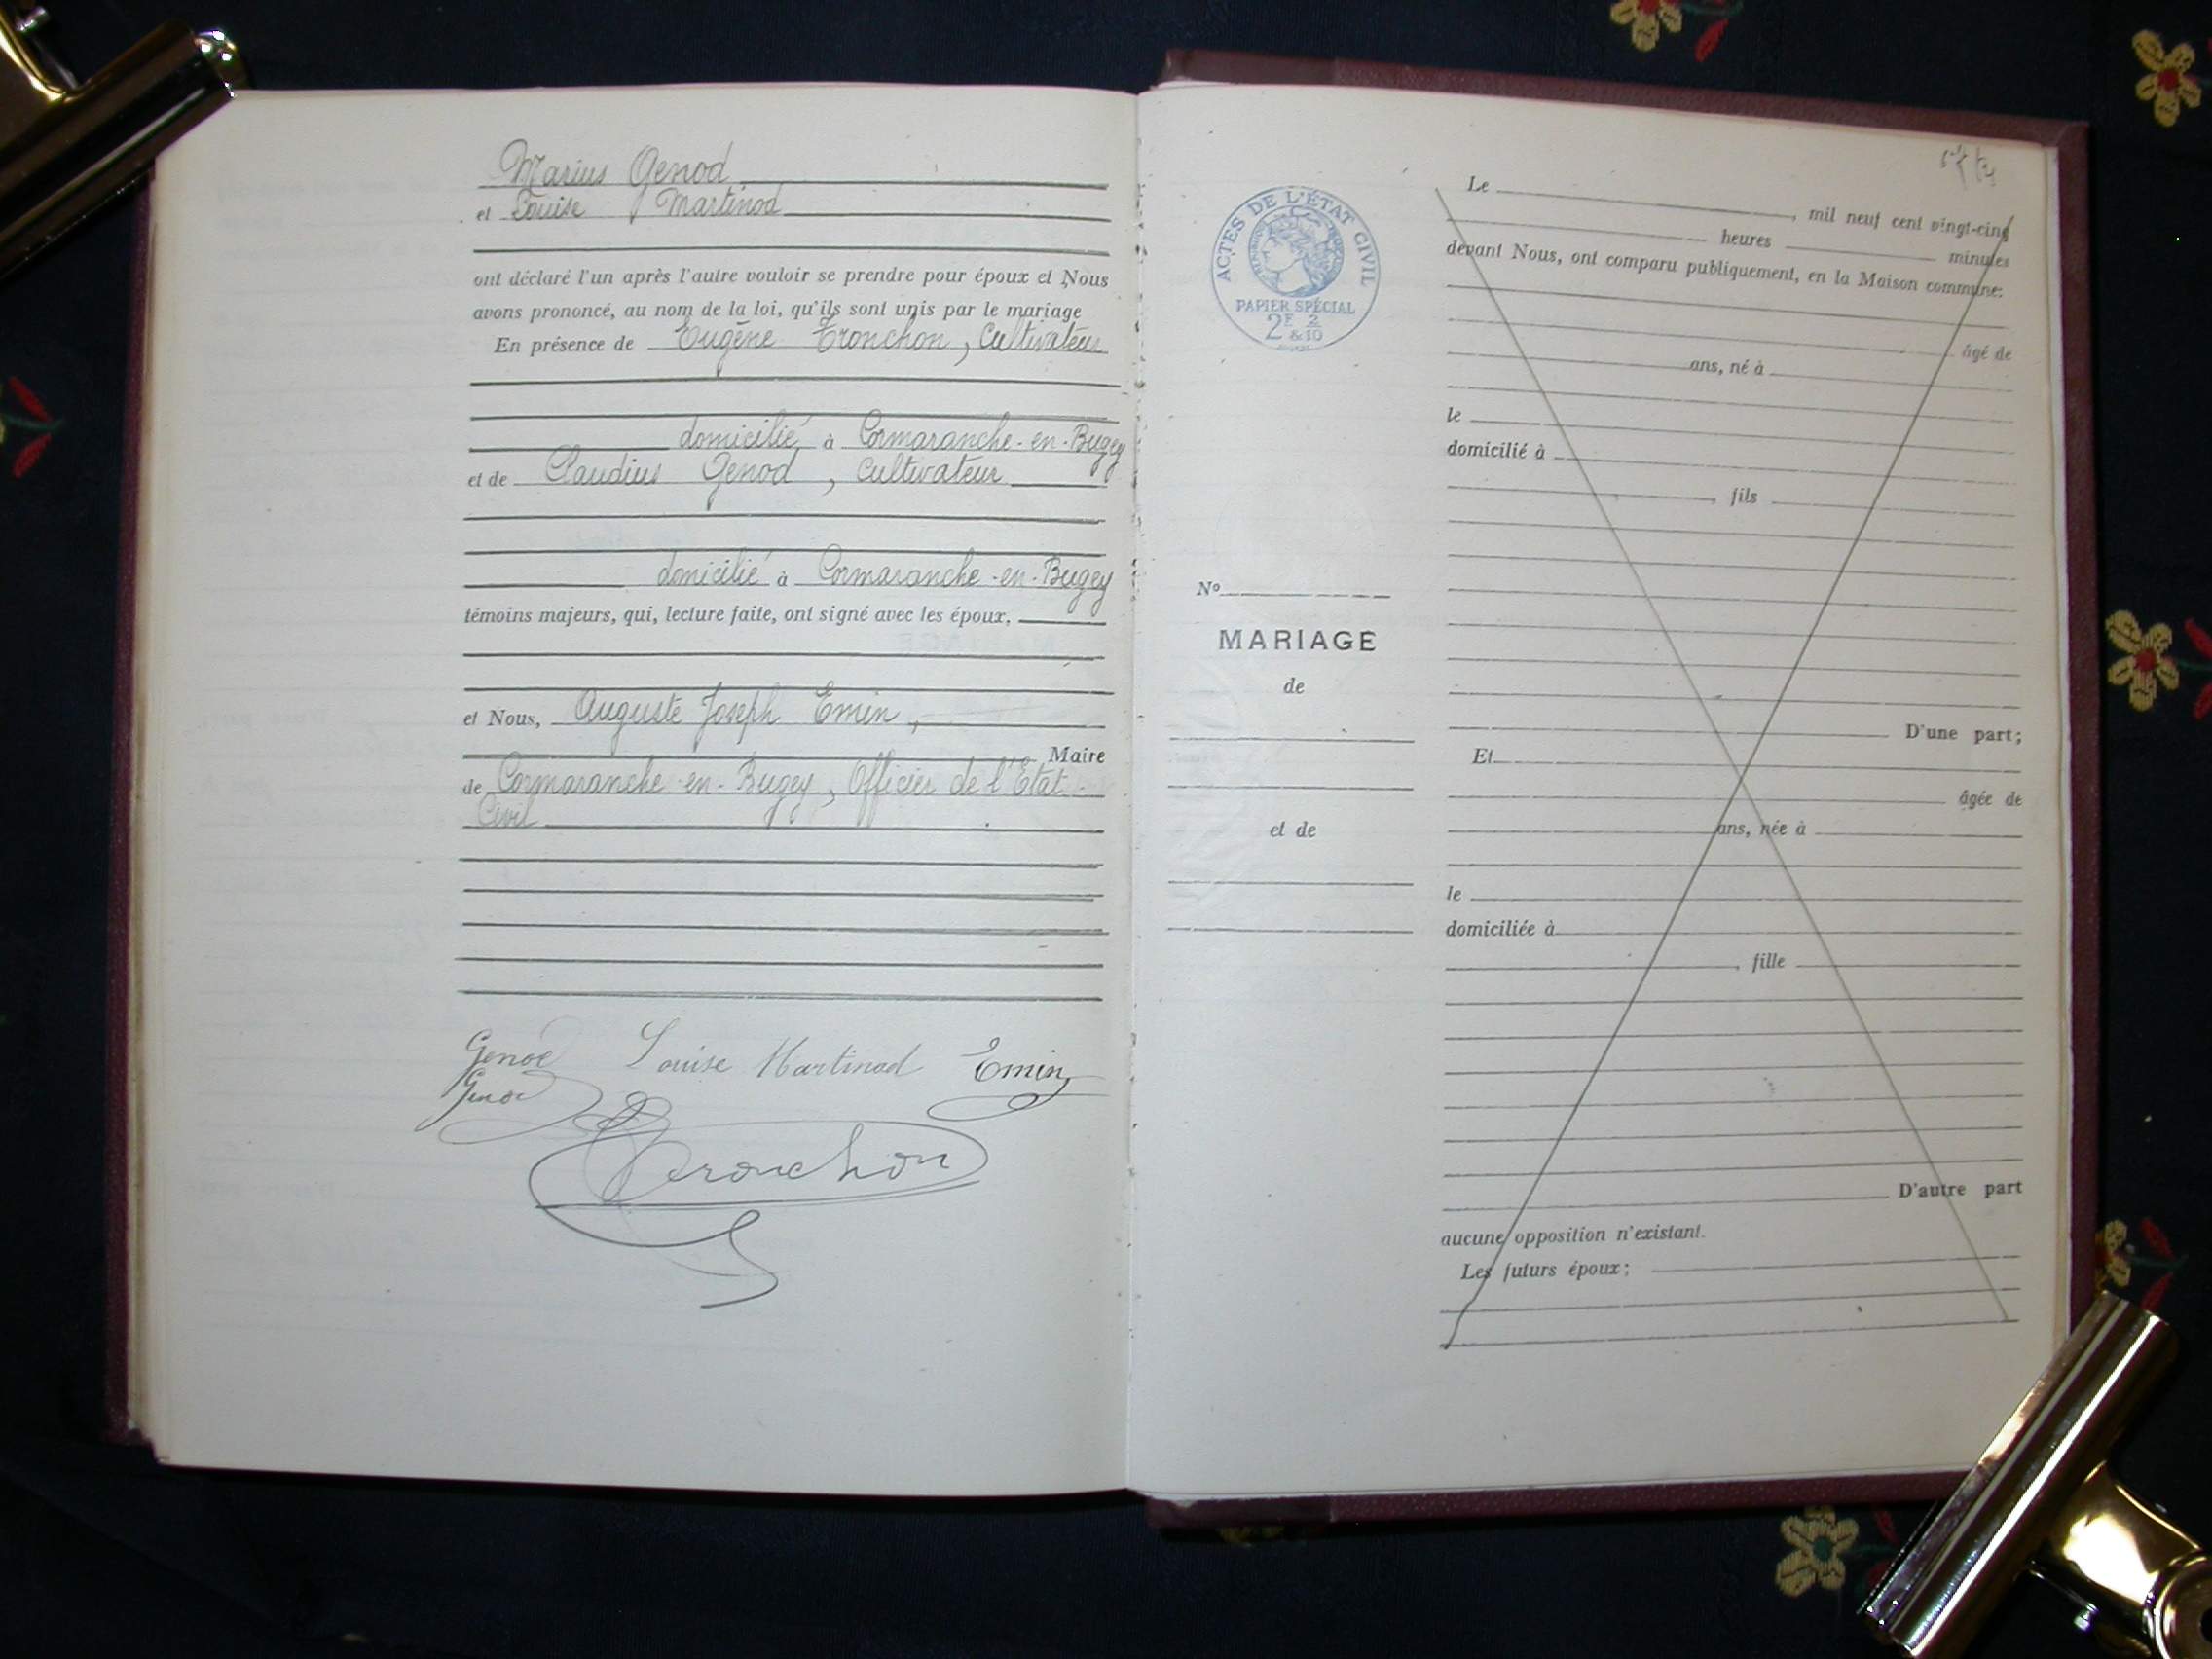 Marius Genod
et Louise Martinod
ont déclaré l'un après l'autre vouloir se prendre pour époux et Nous
avons prononcé, au nom de la loi, qu'ils sont unis par le mariage
En présence de Eugène Tronchon, Cultivateur
domicilié à Cormaranche-en-Bugey
et de Claudius Genod, Cultivateur
domicilié à Cormaranche-en-Bugey
témoins majeurs, qui, lecture faite, ont signé avec les époux,
et Nous, Auguste Joseph Emin,
Maire
de Cormaranche-en-Bugey, Officier de l'Etat
Civil
Genod Louise Martinod Emin
Genod
Tronchon
ACTES DE L'ÉTAT CIVIL
PAPIER SPÉCIAL
2F 2
&10
No
MARIAGE
de
et de
Le , mil neuf cent vingt-cinq
heures minutes
devant Nous, ont comparu publiquement, en la Maison commune:
âgé de
ans, né à
le
domicilié à
, fils
D'une part;
Et
âgée de
ans, née à
le
domiciliée à
, fille
D'autre part
aucune opposition n'existant.
Les futurs époux;